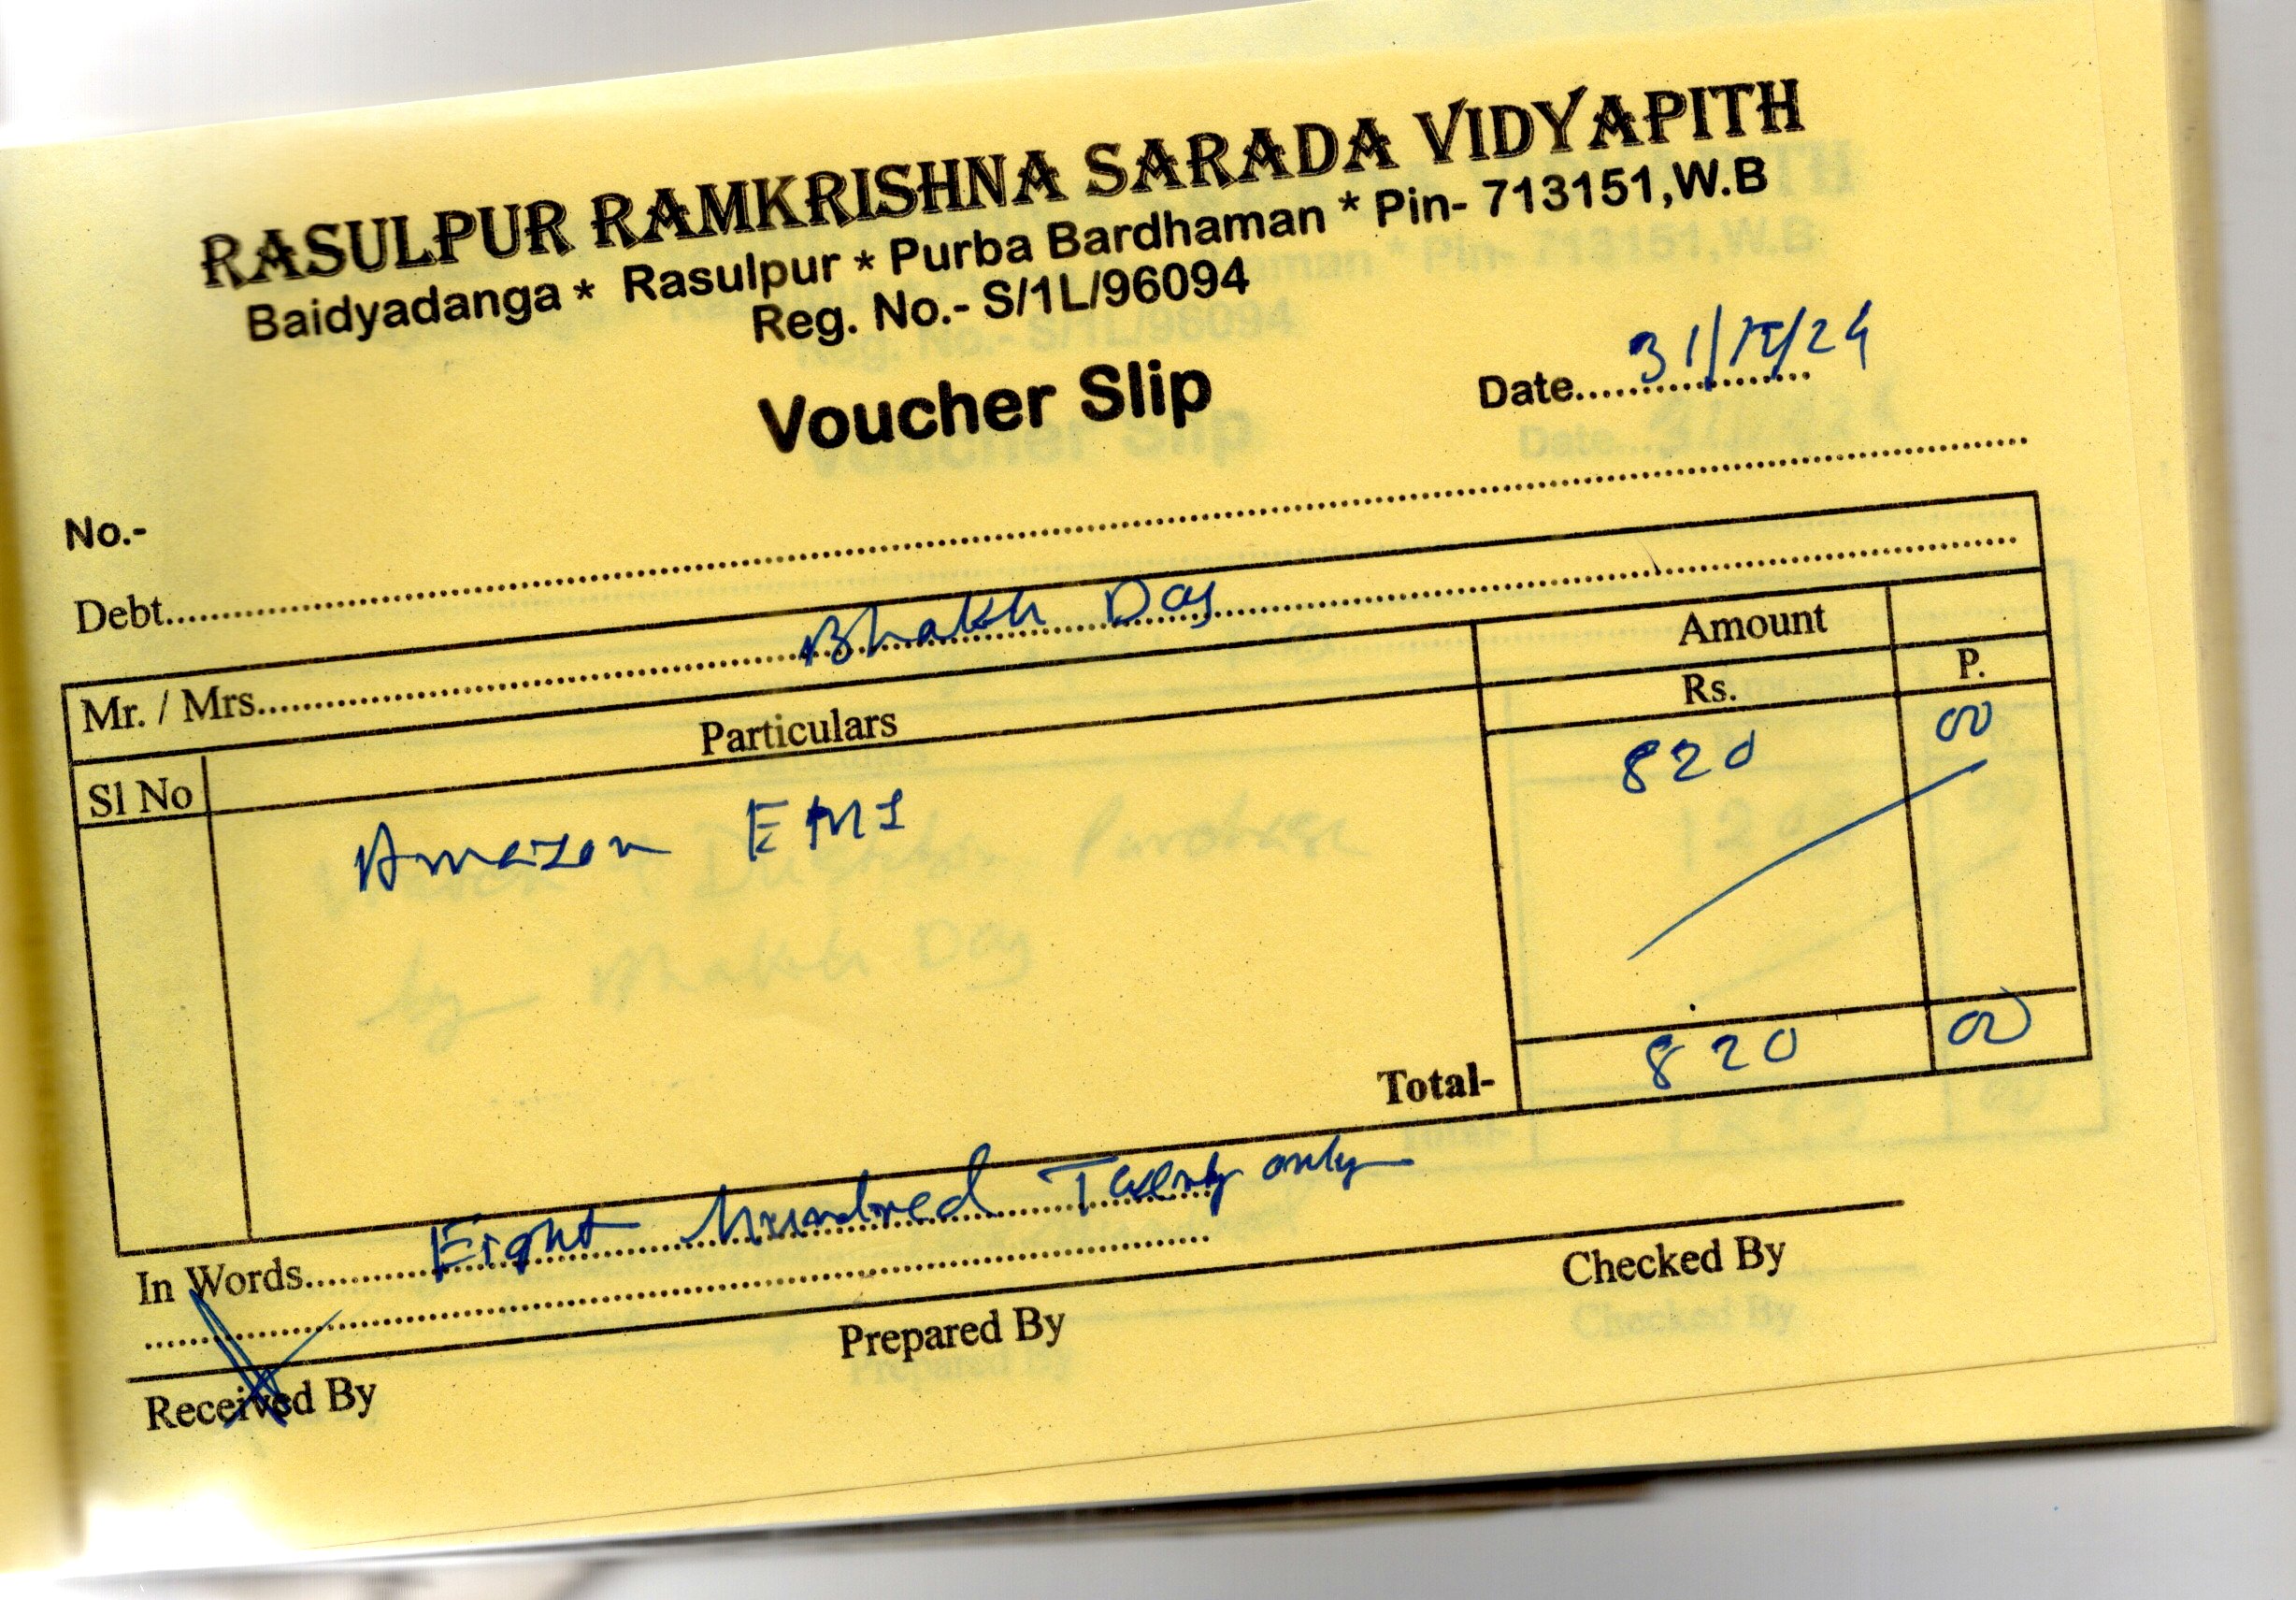 RASULPUR RAMKRISHNA SARADA VIDYAPITH
Baidyadanga * Rasulpur * Purba Bardhaman * Pin- 713151,W.B
Reg. No.- S/1L/96094
Voucher Slip
Date..................
No.-
Debt..........
Mr. / Mrs.......... Bhakti Das
Sl No Particulars Amount
Rs. P.
Amazon EMI 820 00
Total- 820 00
In Words.......... Eight hundred Twenty only
Received By Prepared By Checked By